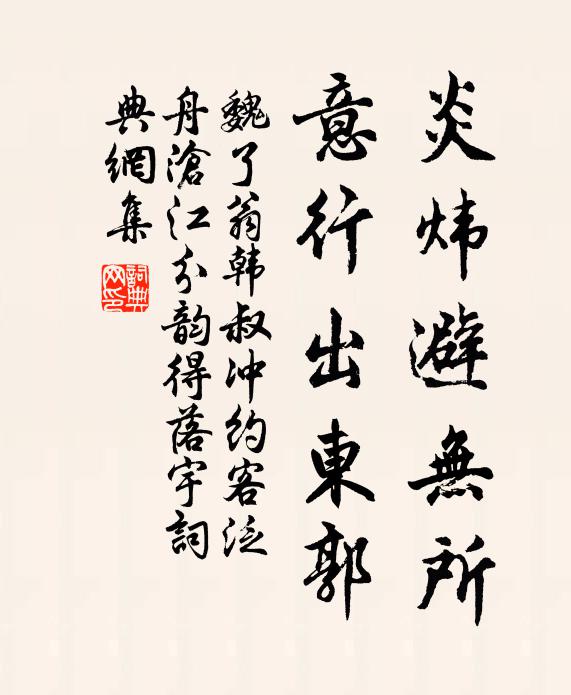 炎炜避無所
意行出東郭
魏了翁韩叔冲约客泛
舟滄江分韵得落字詞
典網集
詞典
网印